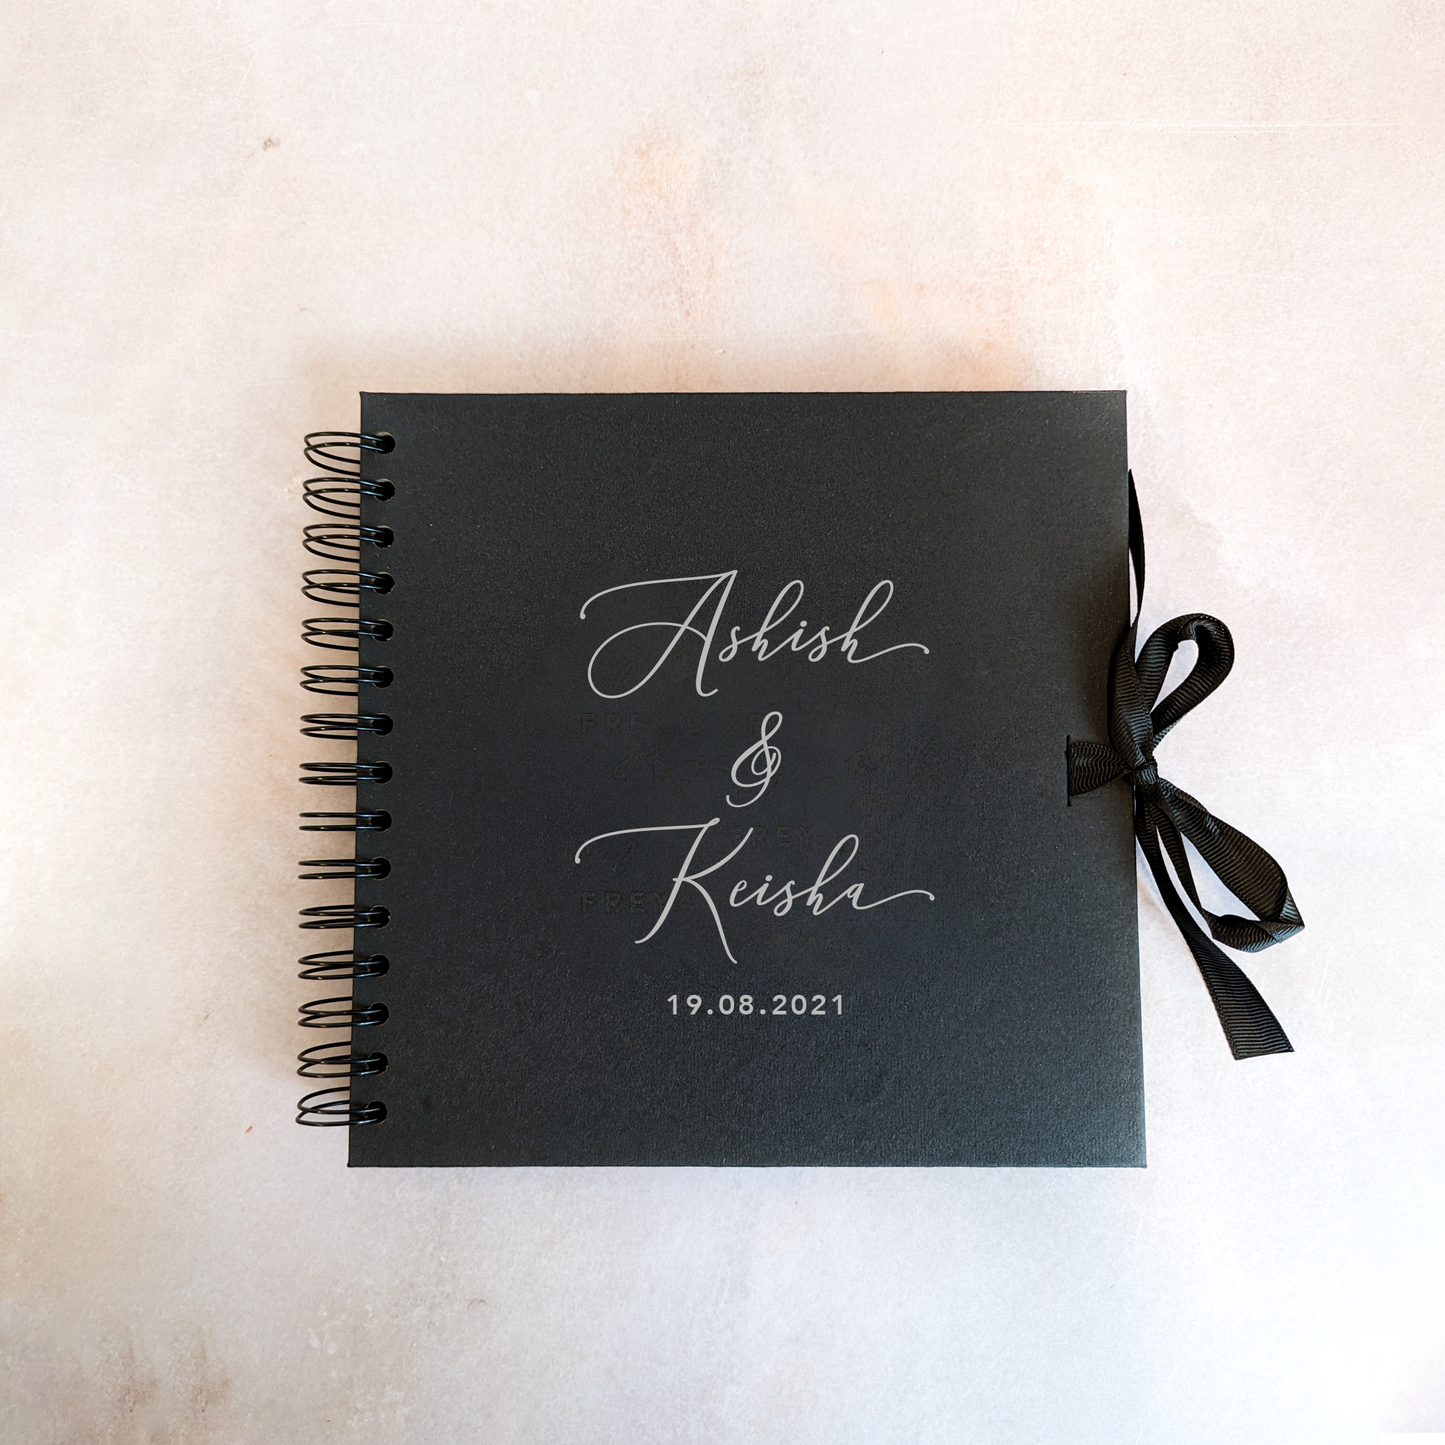 Ashish
&
Keisha
19.08.2021